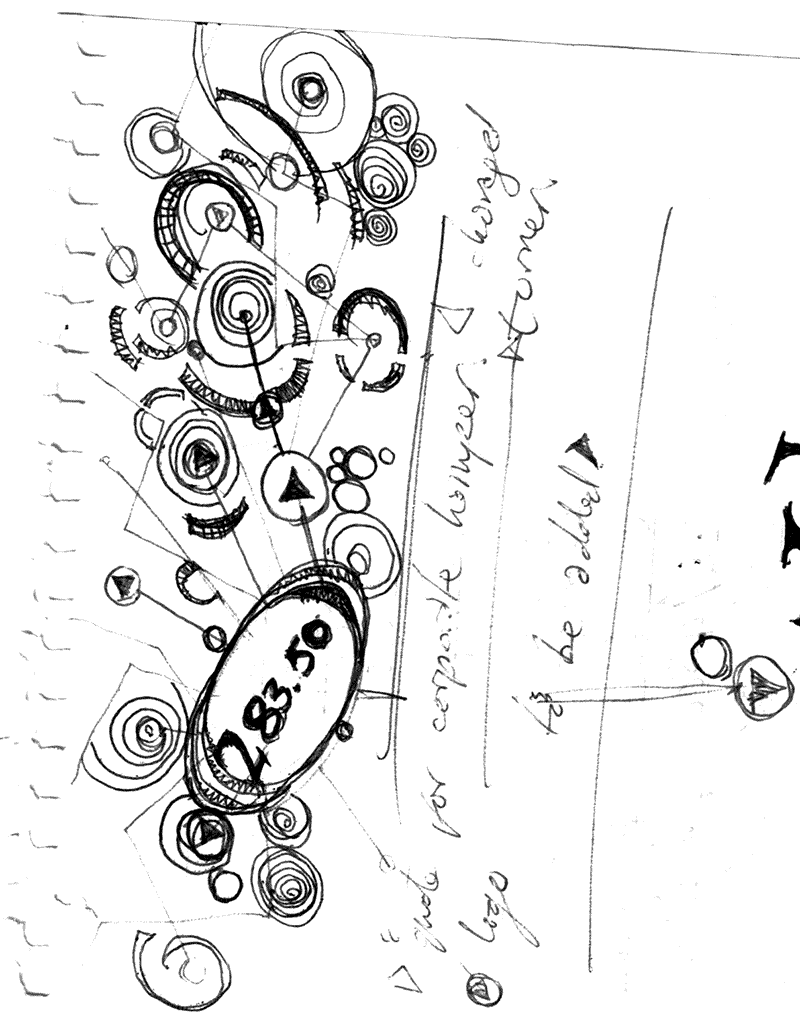 283.50
quote for corporate hamper changed
logo corner
to be added